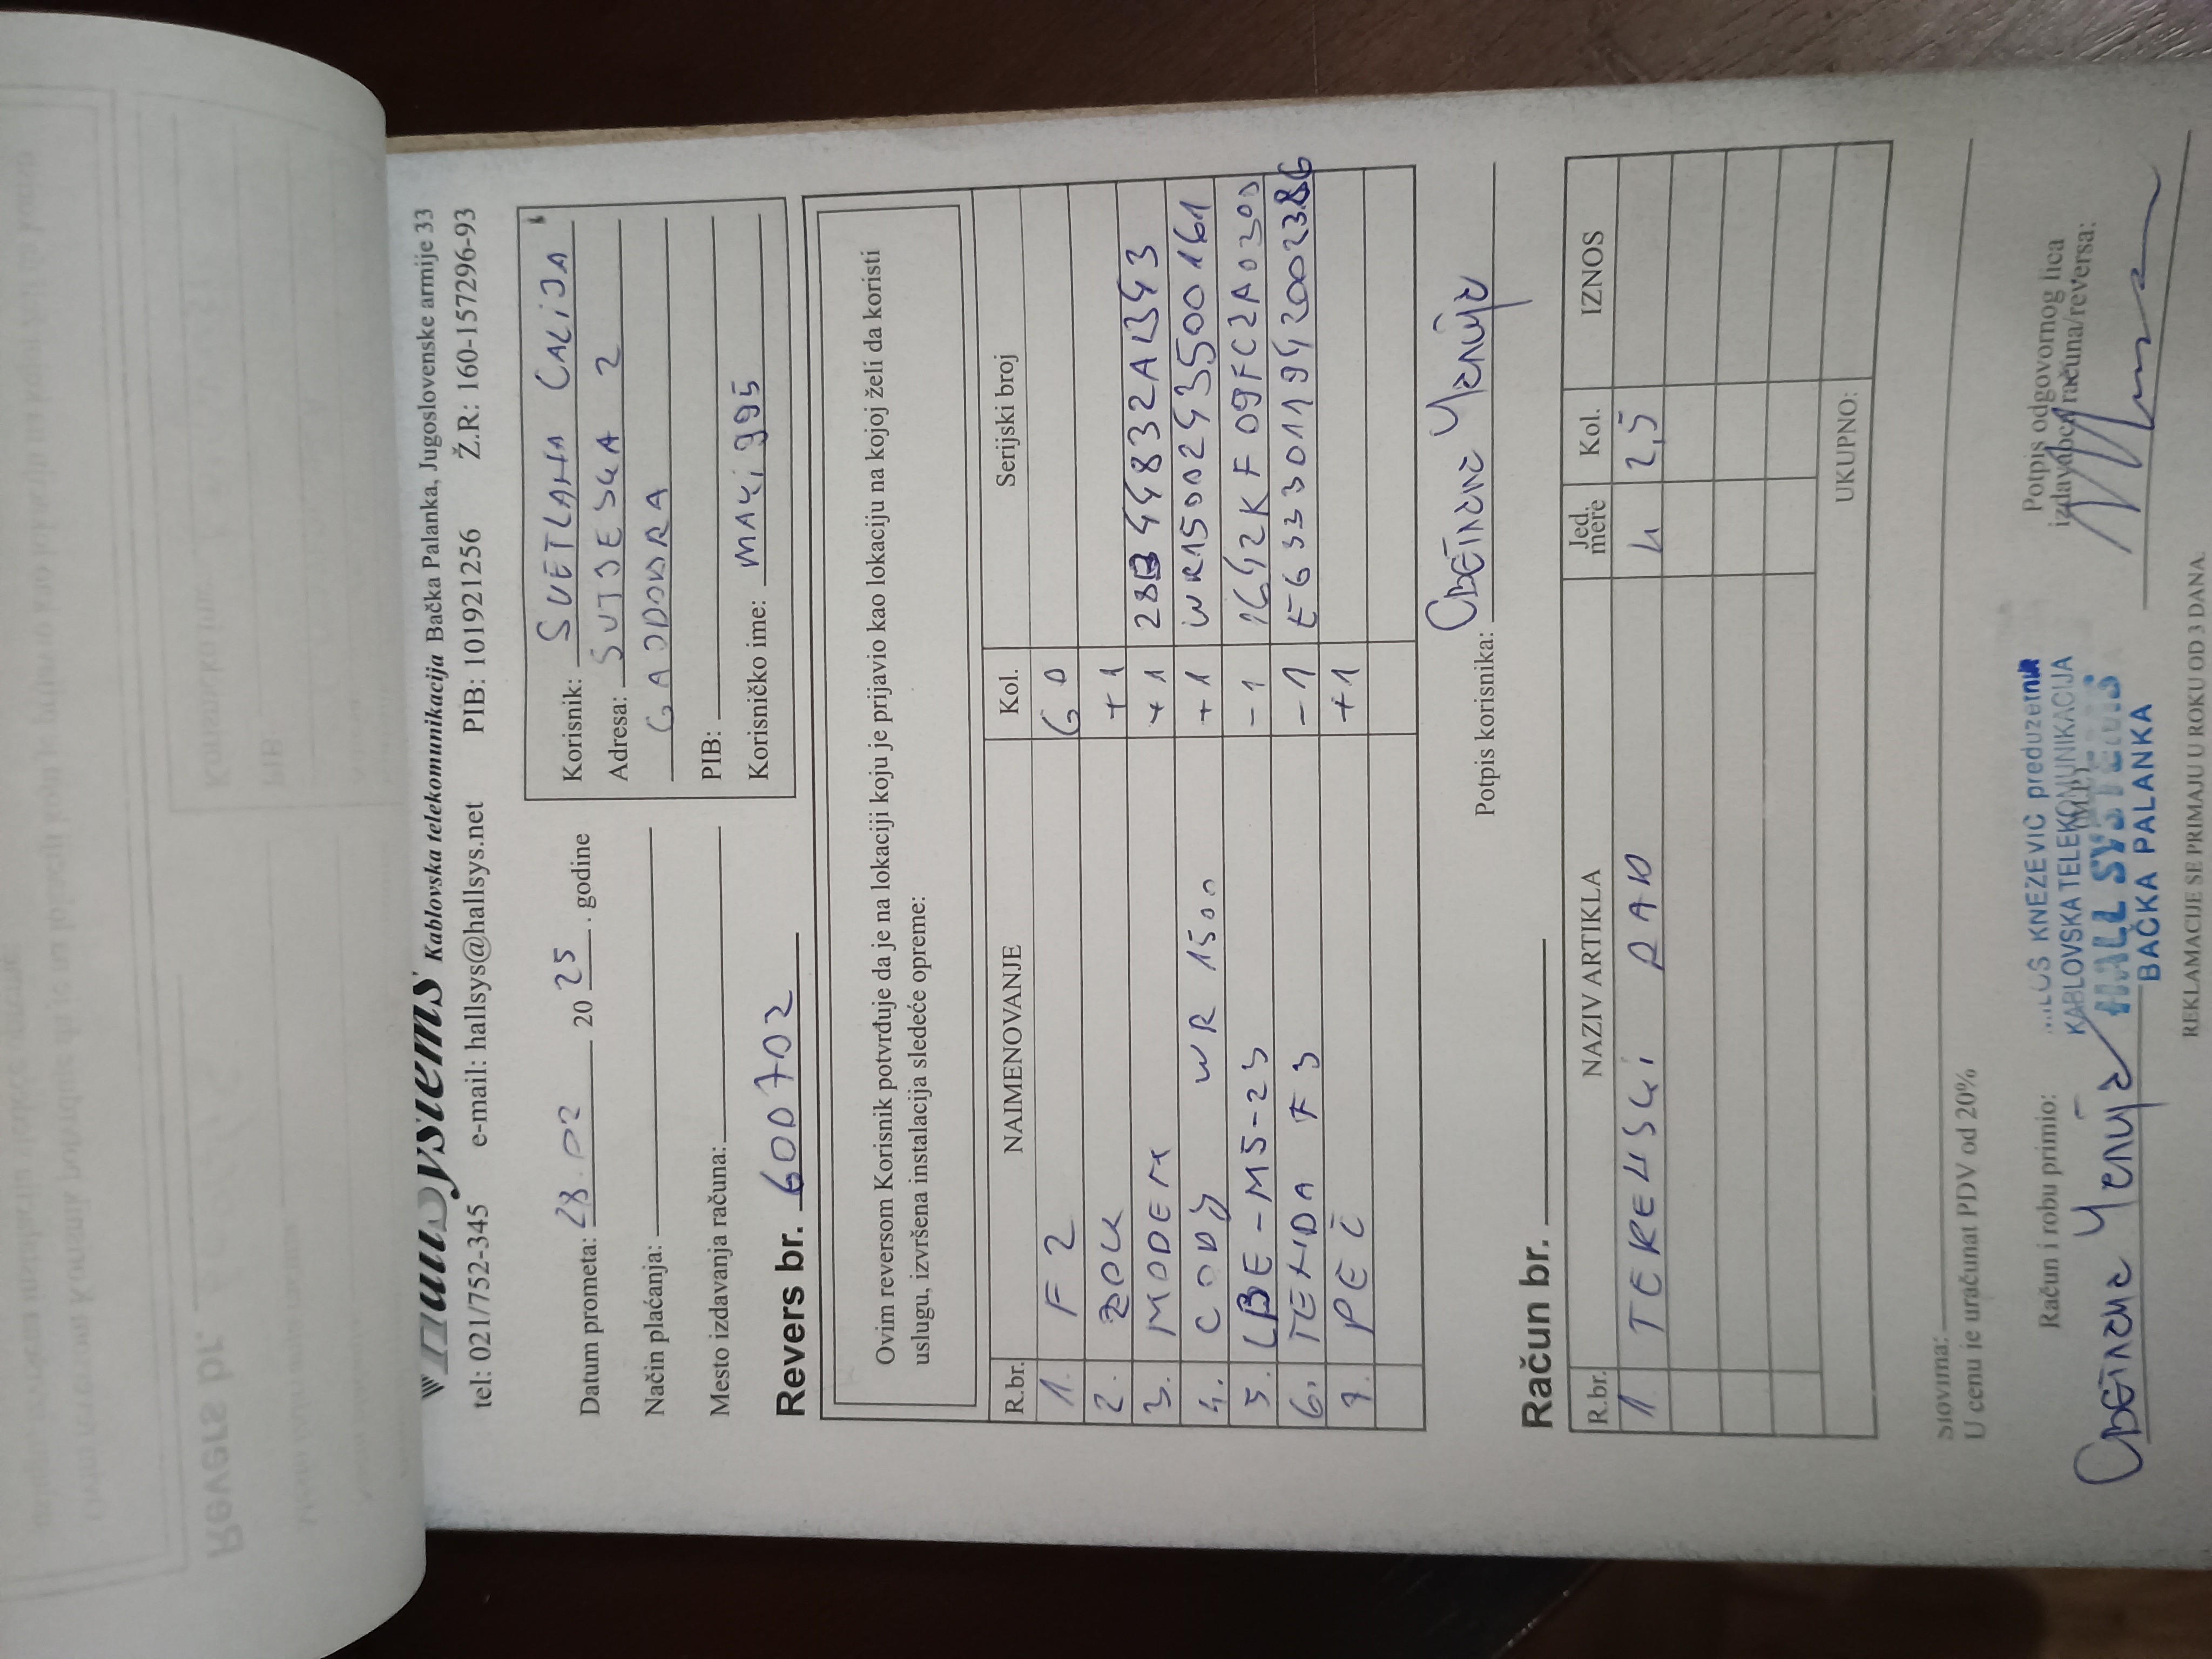 HallSystems Kablovska telekomunikacija Bačka Palanka, Jugoslovenske armije 33
tel: 021/752-345 e-mail: hallsys@hallsys.net PIB: 101921256 Ž.R: 160-157296-93
Datum prometa: 28.02 2025. godine
Način plaćanja:
Mesto izdavanja računa:
Korisnik: SVETLANA CALIJA
Adresa: SUTJESKA 2
GAJDOBRA
PIB:
Korisničko ime: MAKI995
Revers br. 600702
Ovim reversom Korisnik potvrđuje da je na lokaciji koju je prijavio kao lokaciju na kojoj želi da koristi
uslugu, izvršena instalacija sledeće opreme:
R.br. NAIMENOVANJE Kol. Serijski broj
1. F2 60
2. ZOK +1
3. MODEM +1
4. CODY WR 1500 +1 WR1500243500161
5. LBE-M5-23 -1 1642KF09FC2A0300
6. TENDA F3 -1
7. PEČ +1
Potpis korisnika:
Račun br.
R.br. NAZIV ARTIKLA Jed. mere Kol. IZNOS
1 TERENSKI RAD H 2,5
UKUPNO:
Slovima:
U cenu je uračunat PDV od 20%
Račun i robu primio:
(M.P.)
Potpis odgovornog lica
izdavaoca računa/reversa:
KNEZEVIĆ preduzetnik
KABLOVSKA TELEKOMUNIKACIJA
HALL SYSTEMS
BAČKA PALANKA
REKLAMACIJE SE PRIMAJU U ROKU OD 3 DANA.
Revers br.